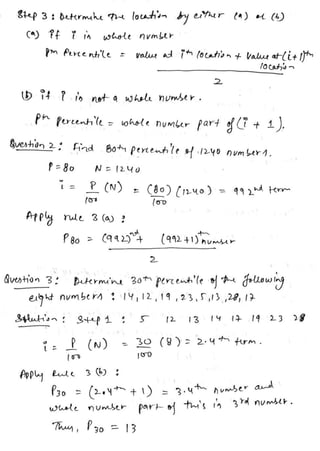 Step 3 : Determine The location by either (a) or (b)
(a) if i is whole number
pth Percentile = value at ith location + Value at (i+1)th location
2
(b) if i is not a whole number.
pth percentile = whole number part of (i + 1).
Question 2 : Find 80th percentile of 1240 numbers.
P = 80 N = 1240
i = P/100 (N) = (80)(1240)/100 = 992nd term
Apply rule 3 (a) :
P80 = (992)th + (992+1)th number
2
Question 3 : Determine 30th percentile of the following
eight numbers : 14, 12, 19, 23, 5, 13, 28, 17
Solution : Step 1 : 5 12 13 14 17 19 23 28
i = P/100 (N) = 30/100 (8) = 2.4th term.
Apply Rule 3 (b) :
P30 = (2.4th + 1) = 3.4th number and
whole number part of this is 3rd number.
Thus, P30 = 13